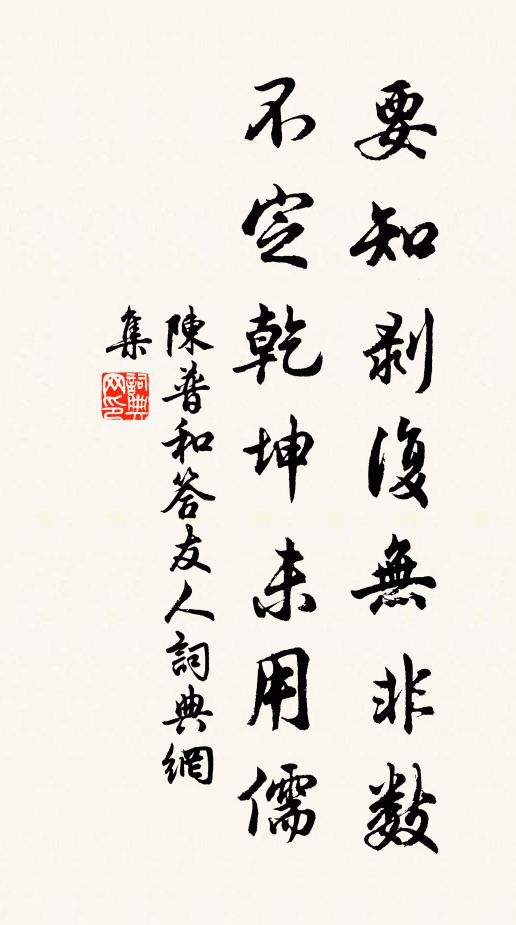 要知剥復無非数
不定乾坤未用儒
陳普和答友人詞典網
集
詞典
网印